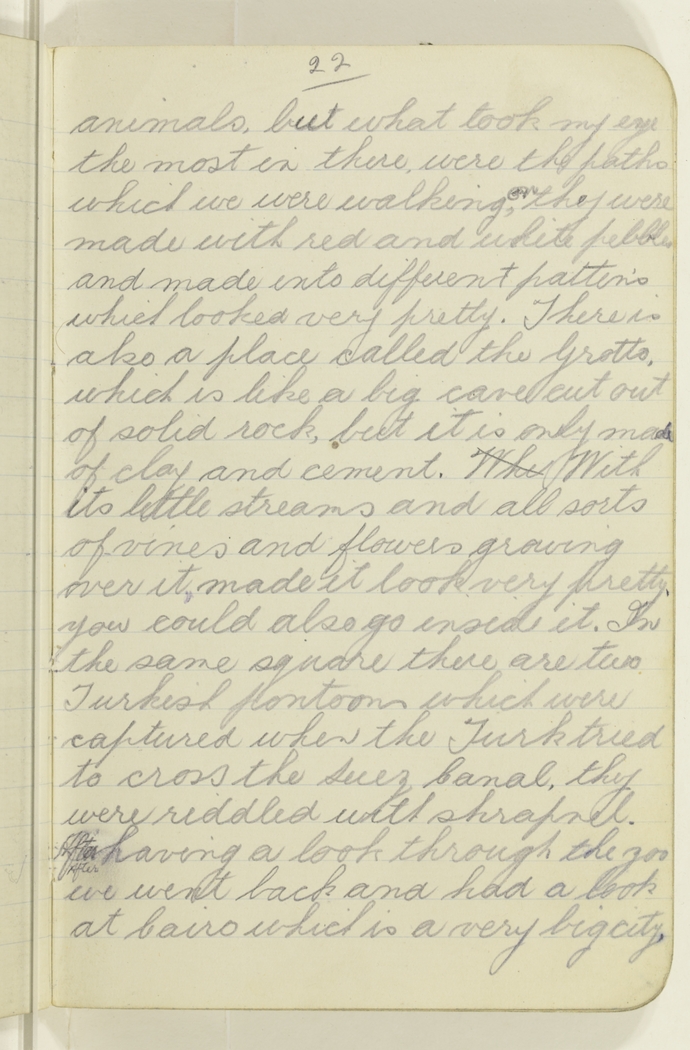 22
animals, but what took my eye
the most in there, were the paths
which we were walking, on they were
made with red and white pebbles
and made into different pattens
which looked very pretty. There is
also a place called the Grotto,
which is like a big cave cut out
of solid rock, but it is only made
of clay and cement. Whe With
its little streams and all sorts
of vines and flowers growing
over it, made it look very pretty,
you could also go inside it. In
the same square there are two
Turkish pontoons which were
captured when the Turk tried
to cross the Suez Canal, they
were riddled with shrapnel.
After After having a look through the zoo
we went back and had a look
at Cairo which is a very big city,